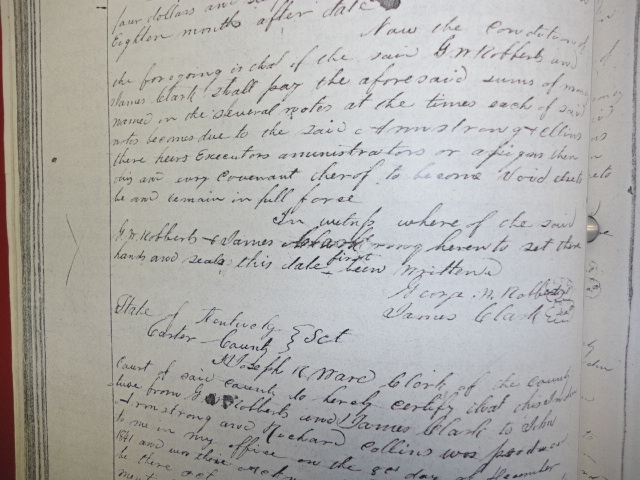 four dollars and
Eighteen months after date
Now the condition of
the foregoing is that if the said G. W. Robberts and
James Clark shall pay the aforesaid sums of mon
named in the several notes at the times each of said
notes becomes due to the said Armstrong & Collins
there heirs Executors aministrators or assigns then
this and evry Covenant therof to become Void else to
be and remain in full forse
In witness where of the said
G. W. Robberts & James Clark hereto set there
hands and seals this date first been written
George W. Robberts
James Clark
State of Kentucky
Carter County } Sct
I Joseph R Ward Clerk of the County
Court of said county do hereby certify that this
from G W Robberts and James Clark to John
Armstrong and Richard Collins was produced
to me in my office on the day of December
1841 and was
be there act